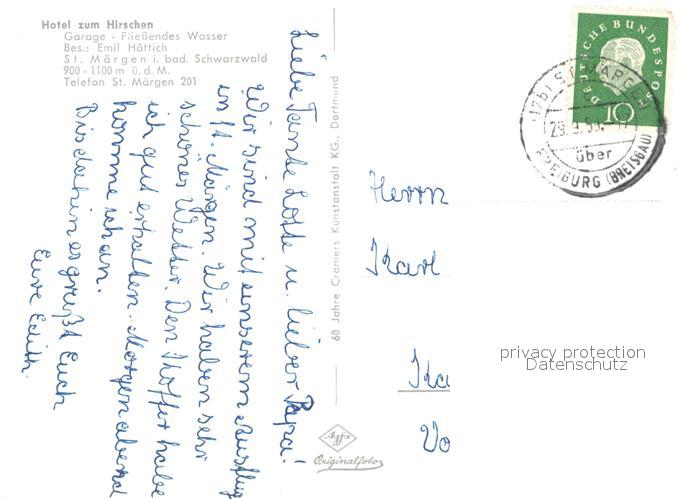 Hotel zum Hirschen
Garage - Fließendes Wasser
Bes.: Emil Hättich
St. Märgen i. bad. Schwarzwald
900 - 1100 m ü. d. M.
Telefon St. Märgen 201
Liebe Tante Lotte u. lieber Papa!
Wir sind mit unserem Ausflug
in St. Märgen. Wir haben sehr
schönes Wetter. Den Koffer habe
ich gut erhalten. Morgen abend
komme ich an.
Bis dahin es grüßt Euch
Eure Edith.
60 Jahre Cramers Kunstanstalt KG., Dortmund
DEUTSCHE BUNDESPOST
10
(17b) ST. MÄRGEN
29.9.
über
FREIBURG (BREISGAU)
Herrn
Karl
Ka
Vo
privacy protection
Datenschutz
Agfa
Originalfoto